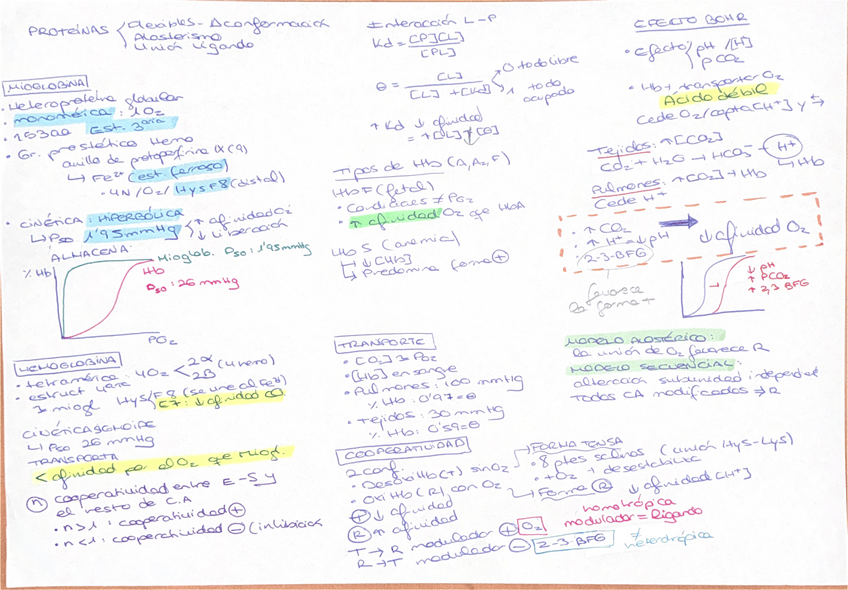 PROTEÍNAS
Flexibles - Δconformación
Alosterismo
Unión ligando
MIOGLOBINA
• Heteroproteína globular
• monomérica: 1O2
• 153aa Est. 3aria
• Gr. prostético Hemo
anillo de protoporfirina IX (9)
↳ Fe2+ (est. ferroso)
• 4N/O2/HysF8 (distal)
• CINÉTICA: HIPERBÓLICA
↳ P50 1'95mmHg
↑ afinidad O2
↓ liberación
ALMACENA:
% Hb
Mioglob. P50: 1'95mmHg
Hb
P50: 26 mmHg
PO2
HEMOGLOBINA
• tetramérica: 4O2 2α 2β (4 hemo)
• estruct 4aria
miogl Hys/F8 (se une al Fe2+)
E7: ↓ afinidad CO
CINÉTICA SIGMOIDE
↳ P50 26 mmHg
TRANSPORTA
< afinidad por el O2 que Miogl.
(n) cooperatividad entre E-S y
el resto de C.A
• n>1: cooperatividad +
• n<1: cooperatividad − (inhibición
Interacción L-P
Kd = [P][L] / [PL]
θ = [L] / [L] + [Kd]
0 todo libre
1 todo ocupado
↑ Kd ↓ afinidad
Tipos de Hb (A, A2, F)
Hb F (fetal)
• Condiciones ≠ PO2
• ↑ afinidad O2 que HbA
Hb S (anemia)
↳ ↓ [Hb]
↳ Predomina forma +
TRANSPORTE
• [Hb] en sangre
• Pulmones: 100 mmHg
% Hb: 0'97=θ
• Tejidos: 30 mmHg
% Hb: 0'59=θ
COOPERATIVIDAD
2 conf.
• Desoxi Hb (T) sin O2
• Oxi Hb (R), con O2
FORMA TENSA
• 8 ptes salinos (unión Hys-Lys)
• +O2 → desestabiliza
Forma R ↓ afinidad [H+]
↓ afinidad
R ↑ afinidad
T → R modulador + O2
R → T modulador − 2-3-BFG
homotrópica
modulador = ligando
≠
heterotrópica
EFECTO BOHR
• Efecto pH / [H]
pCO2
• Hb + transporter O2
Ácido débil
Cede O2/capta [H+] y ↔
Tejidos: ↑[CO2]
CO2 + H2O → HCO3- H+
↳ Hb
Pulmones: ↑[O2] + Hb
Cede H+
• ↑ CO2
• ↑ H+ = ↓ pH
2-3-BFG
↓ afinidad O2
favorece
la forma +
↓ pH
↑ PCO2
↑ 2,3 BFG
MODELO ALOSTÉRICO:
la unión de O2 favorece R
MODELO SECUENCIAL:
alteración subunidad independ
Todos CA modificados → R